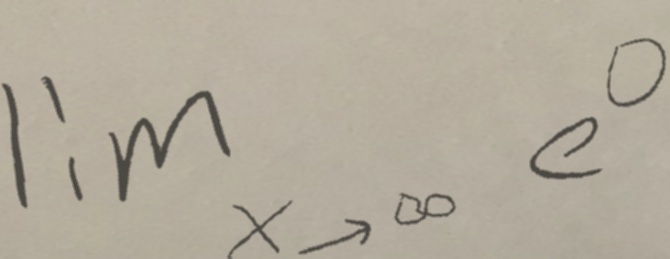 lim x→∞ e^0